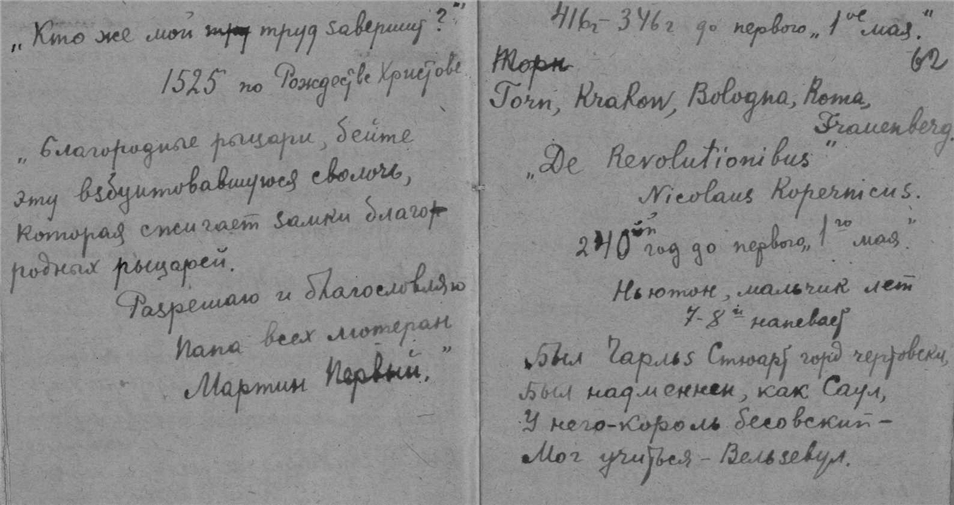 „Кто же мой тру труд завершит?"
1525 по Рождестве Христове
„Благородные рыцари, бейте
эту взбунтовавшуюся сволочь,
которая сжигает замки благо-
родных рыцарей.
Разрешаю и благословляю
Папа всех лютеран
Мартин Первый."
416г - 346г до первого „1ое мая."
62
Жорн
Torn, Krakow, Bologna, Roma,
Frauenberg.
„De Revolutionibus"
Nicolaus Kopernicus.
240ой год до первого „1го мая."
Ньютон, мальчик лет
7-8й напевает
Был Чарльз Стюарт горд чертовски,
Был надменнен, как Саул,
У него-король бесовский-
Мог учиться - Вельзевул.